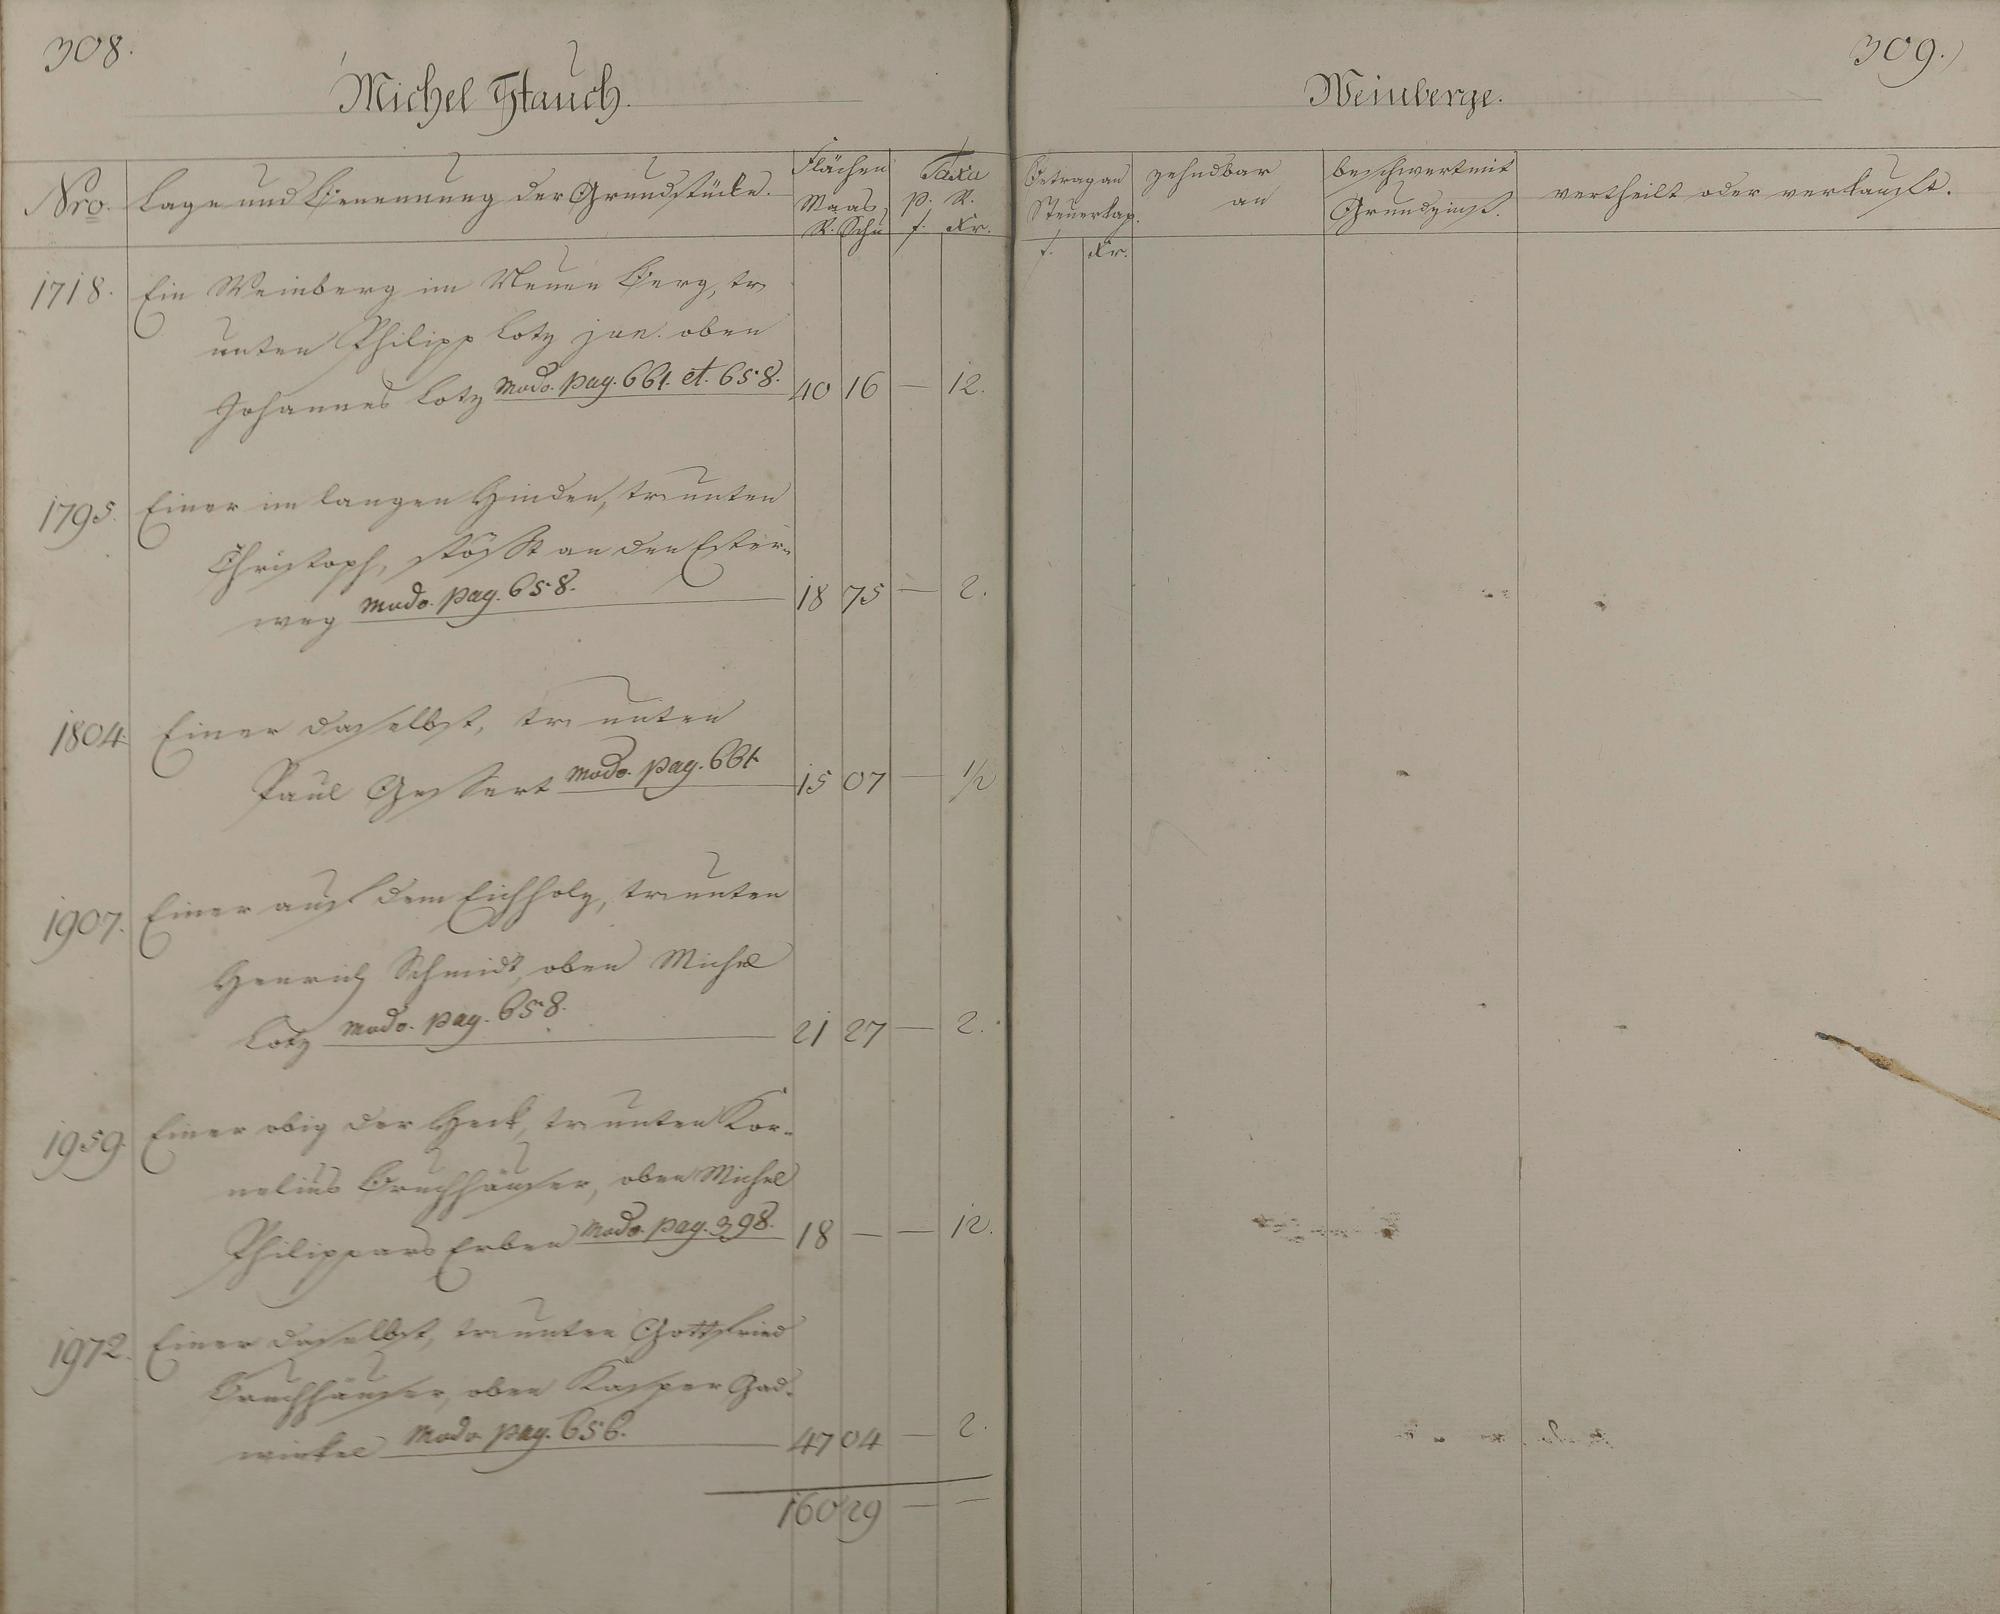 308.
Michel Stauch.
Nro. Lage und Benennung der Grundstücke. Flächen Maas R. Schu Taxa p. R. f. Kr.
1718. Ein Weinberg im Neuen Berg, tr
unten Philipp Lotz jun. oben
Johannes Lotz modo. pag. 661. et. 658. 40 16 — 12.
1795. Einer im langen Hinden, tr unten
Christoph, stößt an den Ester-
weg modo. pag. 658. 18 75 — 2.
1804. Einer daselbst, tr unten
Paul Gessert modo. pag. 661. 15 07 — 1/2
1907. Einer auf dem Eichholz, tr unten
Henrich Schmidt, oben Michel
Lotz modo. pag. 658. 21 27 — 2.
1959. Einer obig der Heck, tr unten Kor-
nelius Bruchhäuser, oben Michel
Philippars Erben modo. pag. 398. 18 — — 12.
1972. Einer daselbst, tr unten Gottfried
Bruchhäuser, oben Kasper Gad-
winkel modo pag. 656. 47 04 — 2.
160 29 — —
309.
Weinberge.
Betrag an Steuerkap. f. Kr. zehndbar an beschwert mit Grundzinß. vertheilt oder verkauft.